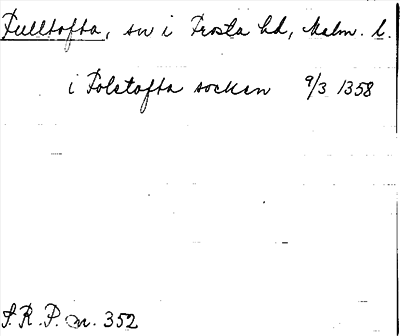 Fulltofta, sn i Frosta hd, Malm. l.
i Folstofta socken 9/3 1358
S.R.P. nr. 352